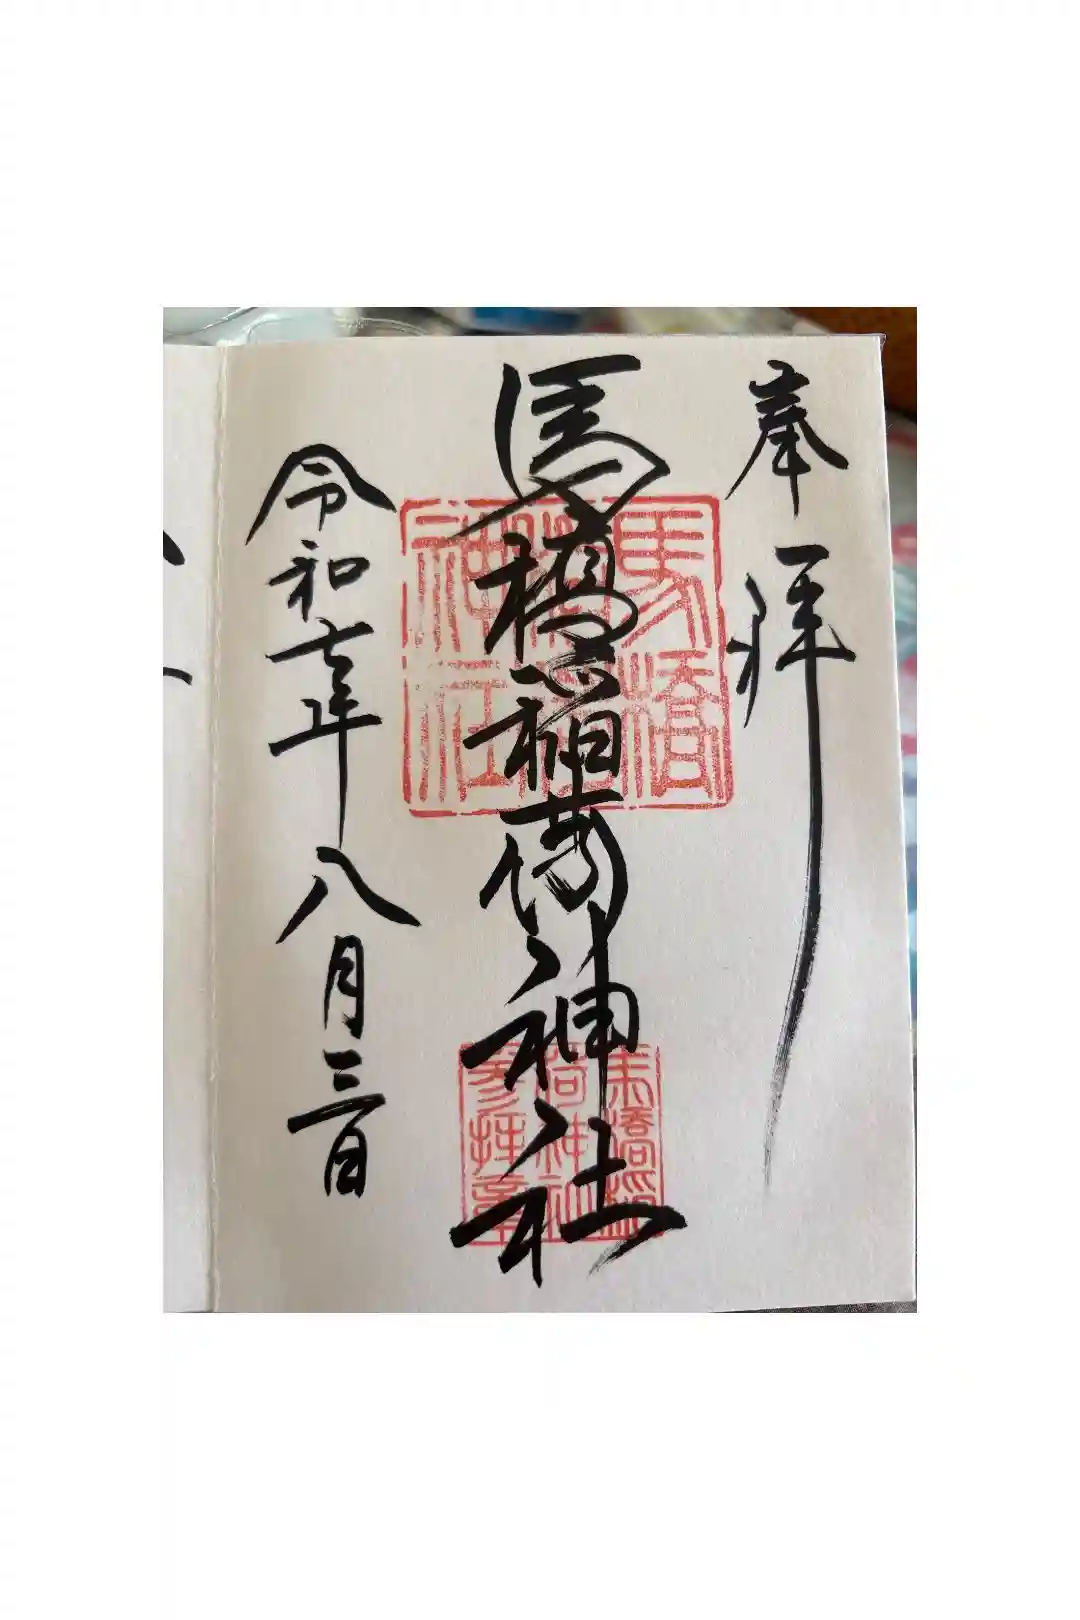 奉拝
馬橋稲荷神社
令和七年八月三日
馬橋
稲荷
神社
馬橋稲
荷神社
参拝章